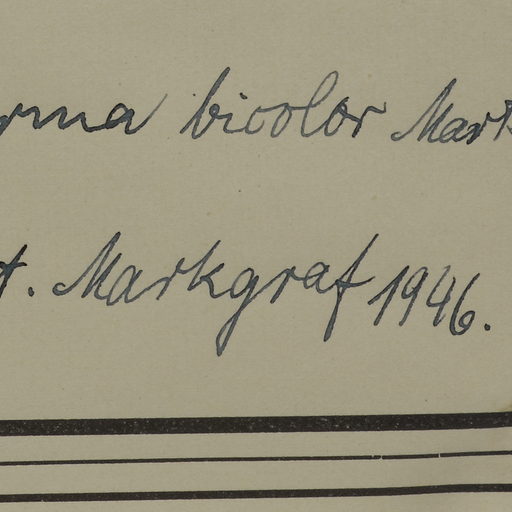 rma bicolor Mark
t. Markgraf 1946.